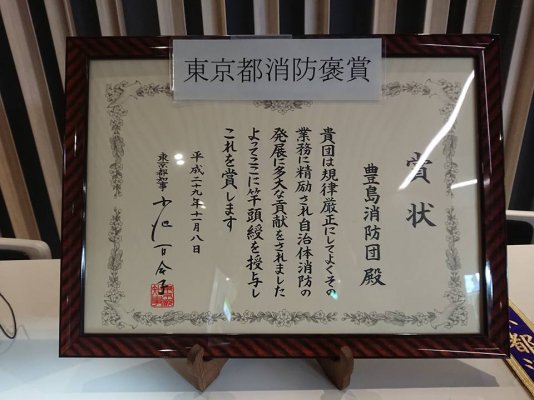 東京都消防褒賞
賞状
豊島消防団殿
貴団は規律厳正にしてよくその
業務に精励され自治体消防の
発展に多大な貢献をされました
よってここに竿頭綬を授与し
これを賞します
平成二十九年十一月八日
東京都知事 小池百合子
都